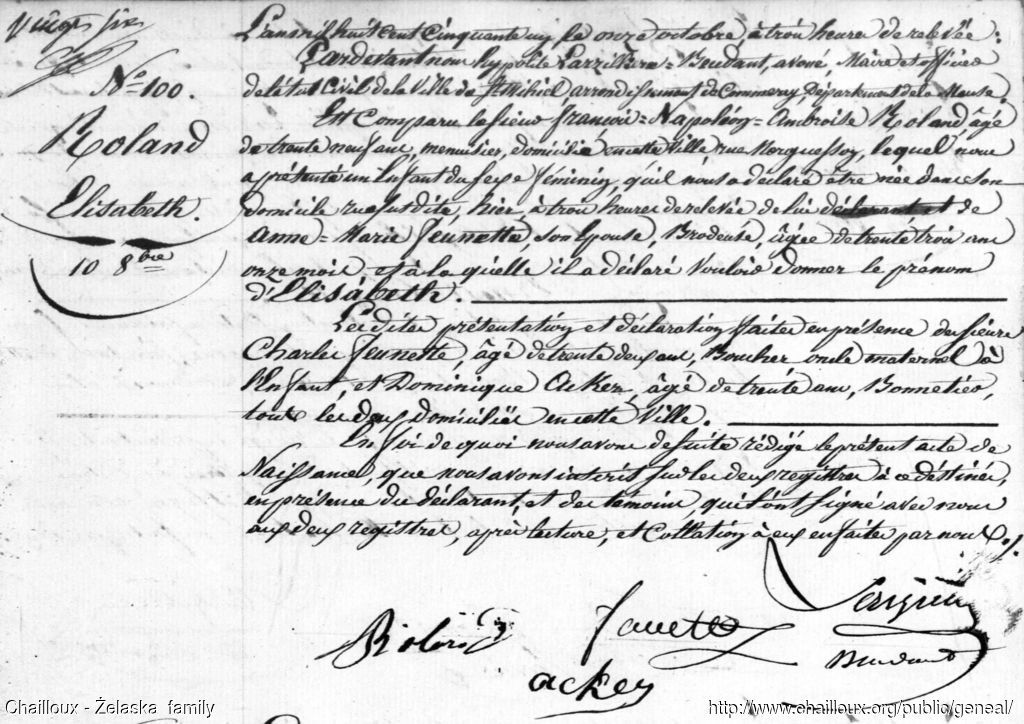 Vingt six
N° 100.
Roland
Elisabeth.
10 8bre
L'an mil huit cent cinquante un le onze octobre, à trois heures de relevée :
Pardevant nous hypolite Larzillière = Beudant, avoué, Maire et officier
de l'état Civil de la Ville de St Mihiel arrondissement de Commercy, Département de la Meuse.
Est Comparu le sieur françois = Napoléon = Ambroise Roland, âgé
de trente neuf ans, menuisier, domicilié en cette Ville rue, lequel nous
a présenté un Enfant du sexe féminin, qu'il nous a déclaré être née dans son
domicile rue susdite, hier, à trois heures de relevée de lui déclarant et de
Anne = Marie Jeunette, son Epouse, Brodeuse, âgée de trente trois ans
onze mois, et à laquelle il a déclaré Vouloir donner le prénom
d'Elisabeth.
Les dites présentation et déclaration faites en présence des sieurs
Charles Jeunette, âgé de trente deux ans, Boucher oncle maternel à
l'Enfant, et Dominique Acker, âgé de trente ans, Bonnetier,
tous les deux domiciliés en cette Ville.
En foi de quoi nous avons de suite rédigé le présent acte de
Naissance, que nous avons inscrit sur les deux registres à ce destinés,
en présence du déclarant, et des témoins, qui l'ont signé avec nous
aux deux registres, après lecture, et Collation à eux en faites par nous.
Roland
Jeunette
acker
Beudant
Chailloux - Żelaska family
http://www.chailloux.org/public/geneal/